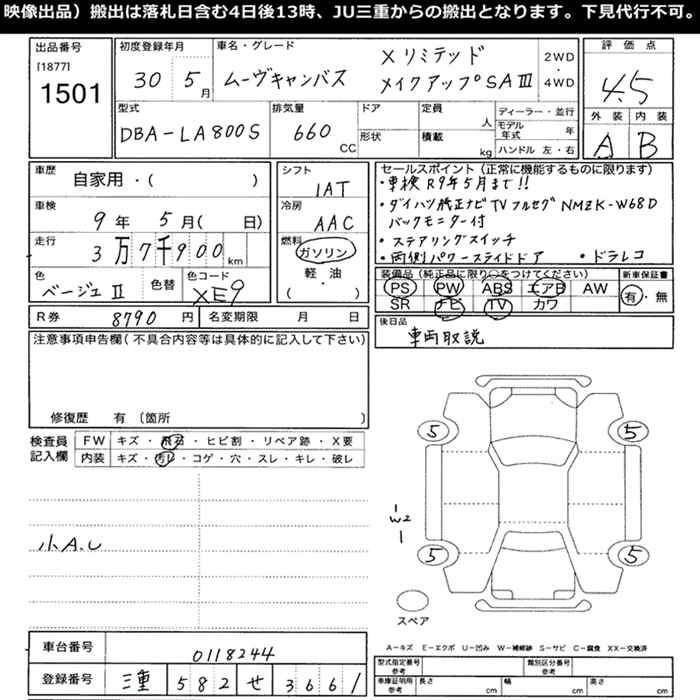 映像出品）搬出は落札日含む4日後13時、JU三重からの搬出となります。下見代行不可。
出品番号 [1877] 1501
初度登録年月 30 5月
車名・グレード ムーヴキャンバス Xリミテッド メイクアップSAⅢ 2WD・4WD
評価点 4.5
型式 DBA-LA800S
排気量 660 CC
ドア 形状
定員 人 積載 kg
ディーラー・並行 モデル年式 年 ハンドル 左・右
外装 A 内装 B
車歴 自家用・( )
車検 9年 5月( 日)
走行 3万7千900km
色 ベージュⅡ 色替 色コード XE9
シフト IAT
冷房 AAC
燃料 ガソリン 軽・油 ( ・ )
セールスポイント (正常に機能するものに限ります)
・車検R9年5月まで!!
・ダイハツ純正ナビTVフルセグNMZK-W68D
バックモニター付
・ステアリングスイッチ
・両側パワースライドドア ・ドラレコ
装備品(純正品に限り○をつけてください) 新車保証書
PS PW ABS エアB AW 有・無
SR ナビ TV カワ
R券 8790円 名変期限 月 日
後日品 車両取説
注意事項申告欄(不具合内容等は具体的に記入して下さい)
修復歴 有 〔箇所 〕
検査員記入欄 FW キズ・飛石・ヒビ割・リペア跡・X要
内装 キズ・汚レ・コゲ・穴・スレ・キレ・破レ
小A.U
5 5
W2
5 5
スペア
A-キズ E-エクボ U-凹み W-補修跡 S-サビ C-腐食 XX-交換済
車台番号 0118244
登録番号 三重 582 せ 3661
型式指定番号 参考 類別区分番号 参考
車庫証明用 参考 長さ cm 幅 cm 高さ cm